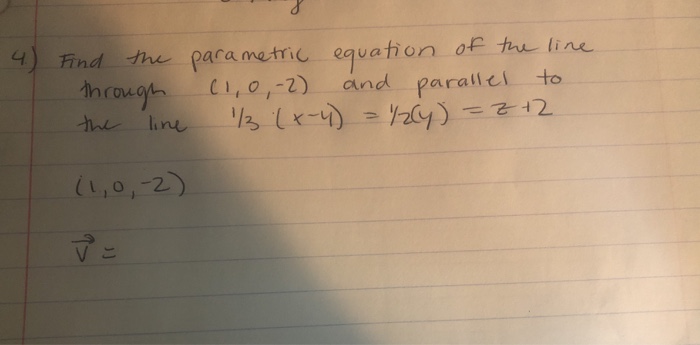 4) Find the parametric equation of the line
through (1,0,-2) and parallel to
the line 1/3 (x-4) = 1/2(y) = z+2
(1,0,-2)
v⃗ =